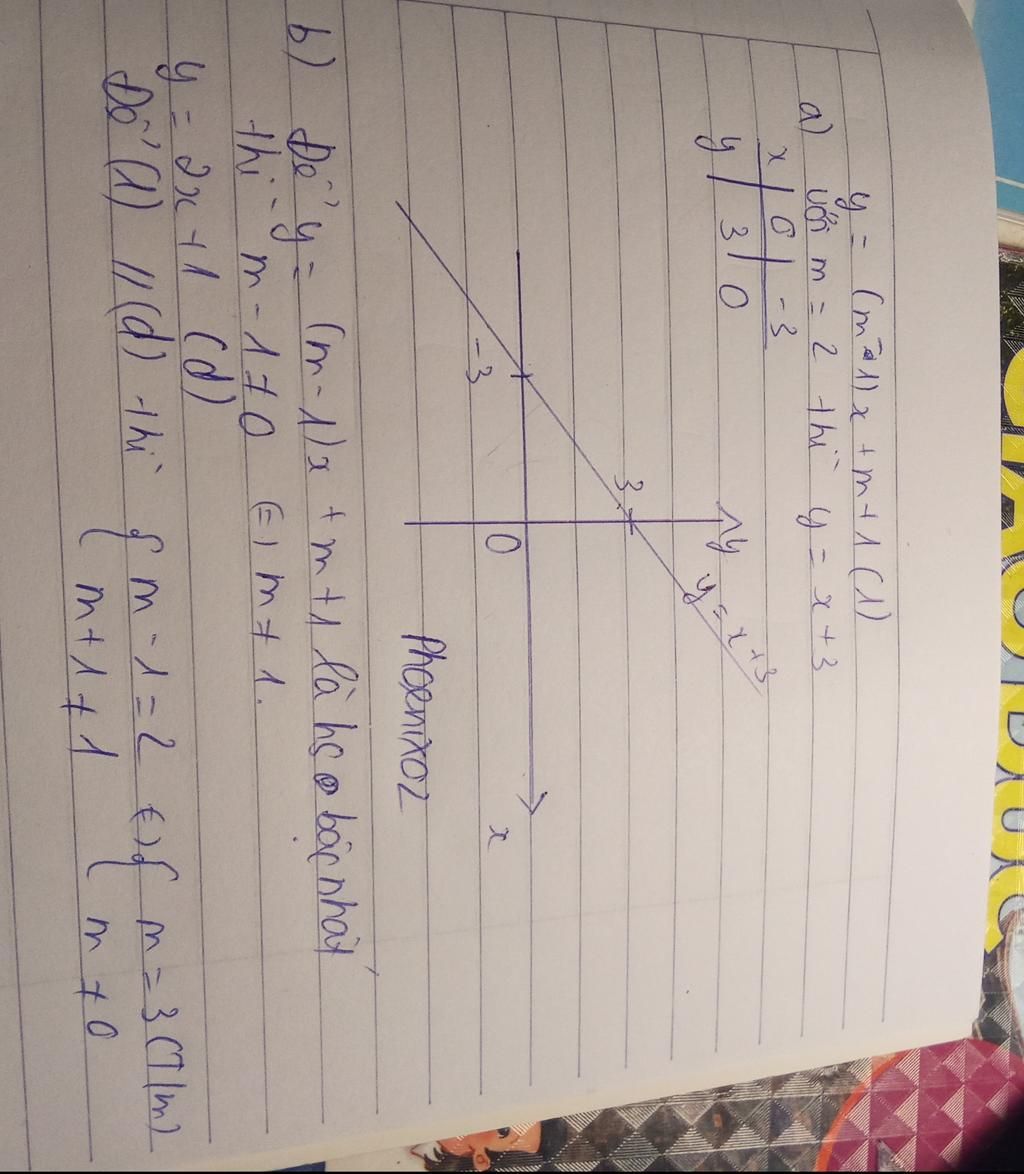 y = (m-1)x + m+1 (1)
a) với m = 2 thì y = x+3
x | 0 | -3
y | 3 | 0
y
y = x+3
3
-3
0
x
Phoenix02
b) Để y = (m-1)x + m+1 là hs bậc nhất
thì m-1≠0 (=) m≠1.
y = 2x+1 (d)
Để (1) // (d) thì { m-1=2 (=) { m=3 (T/m)
{ m+1≠1 { m≠0